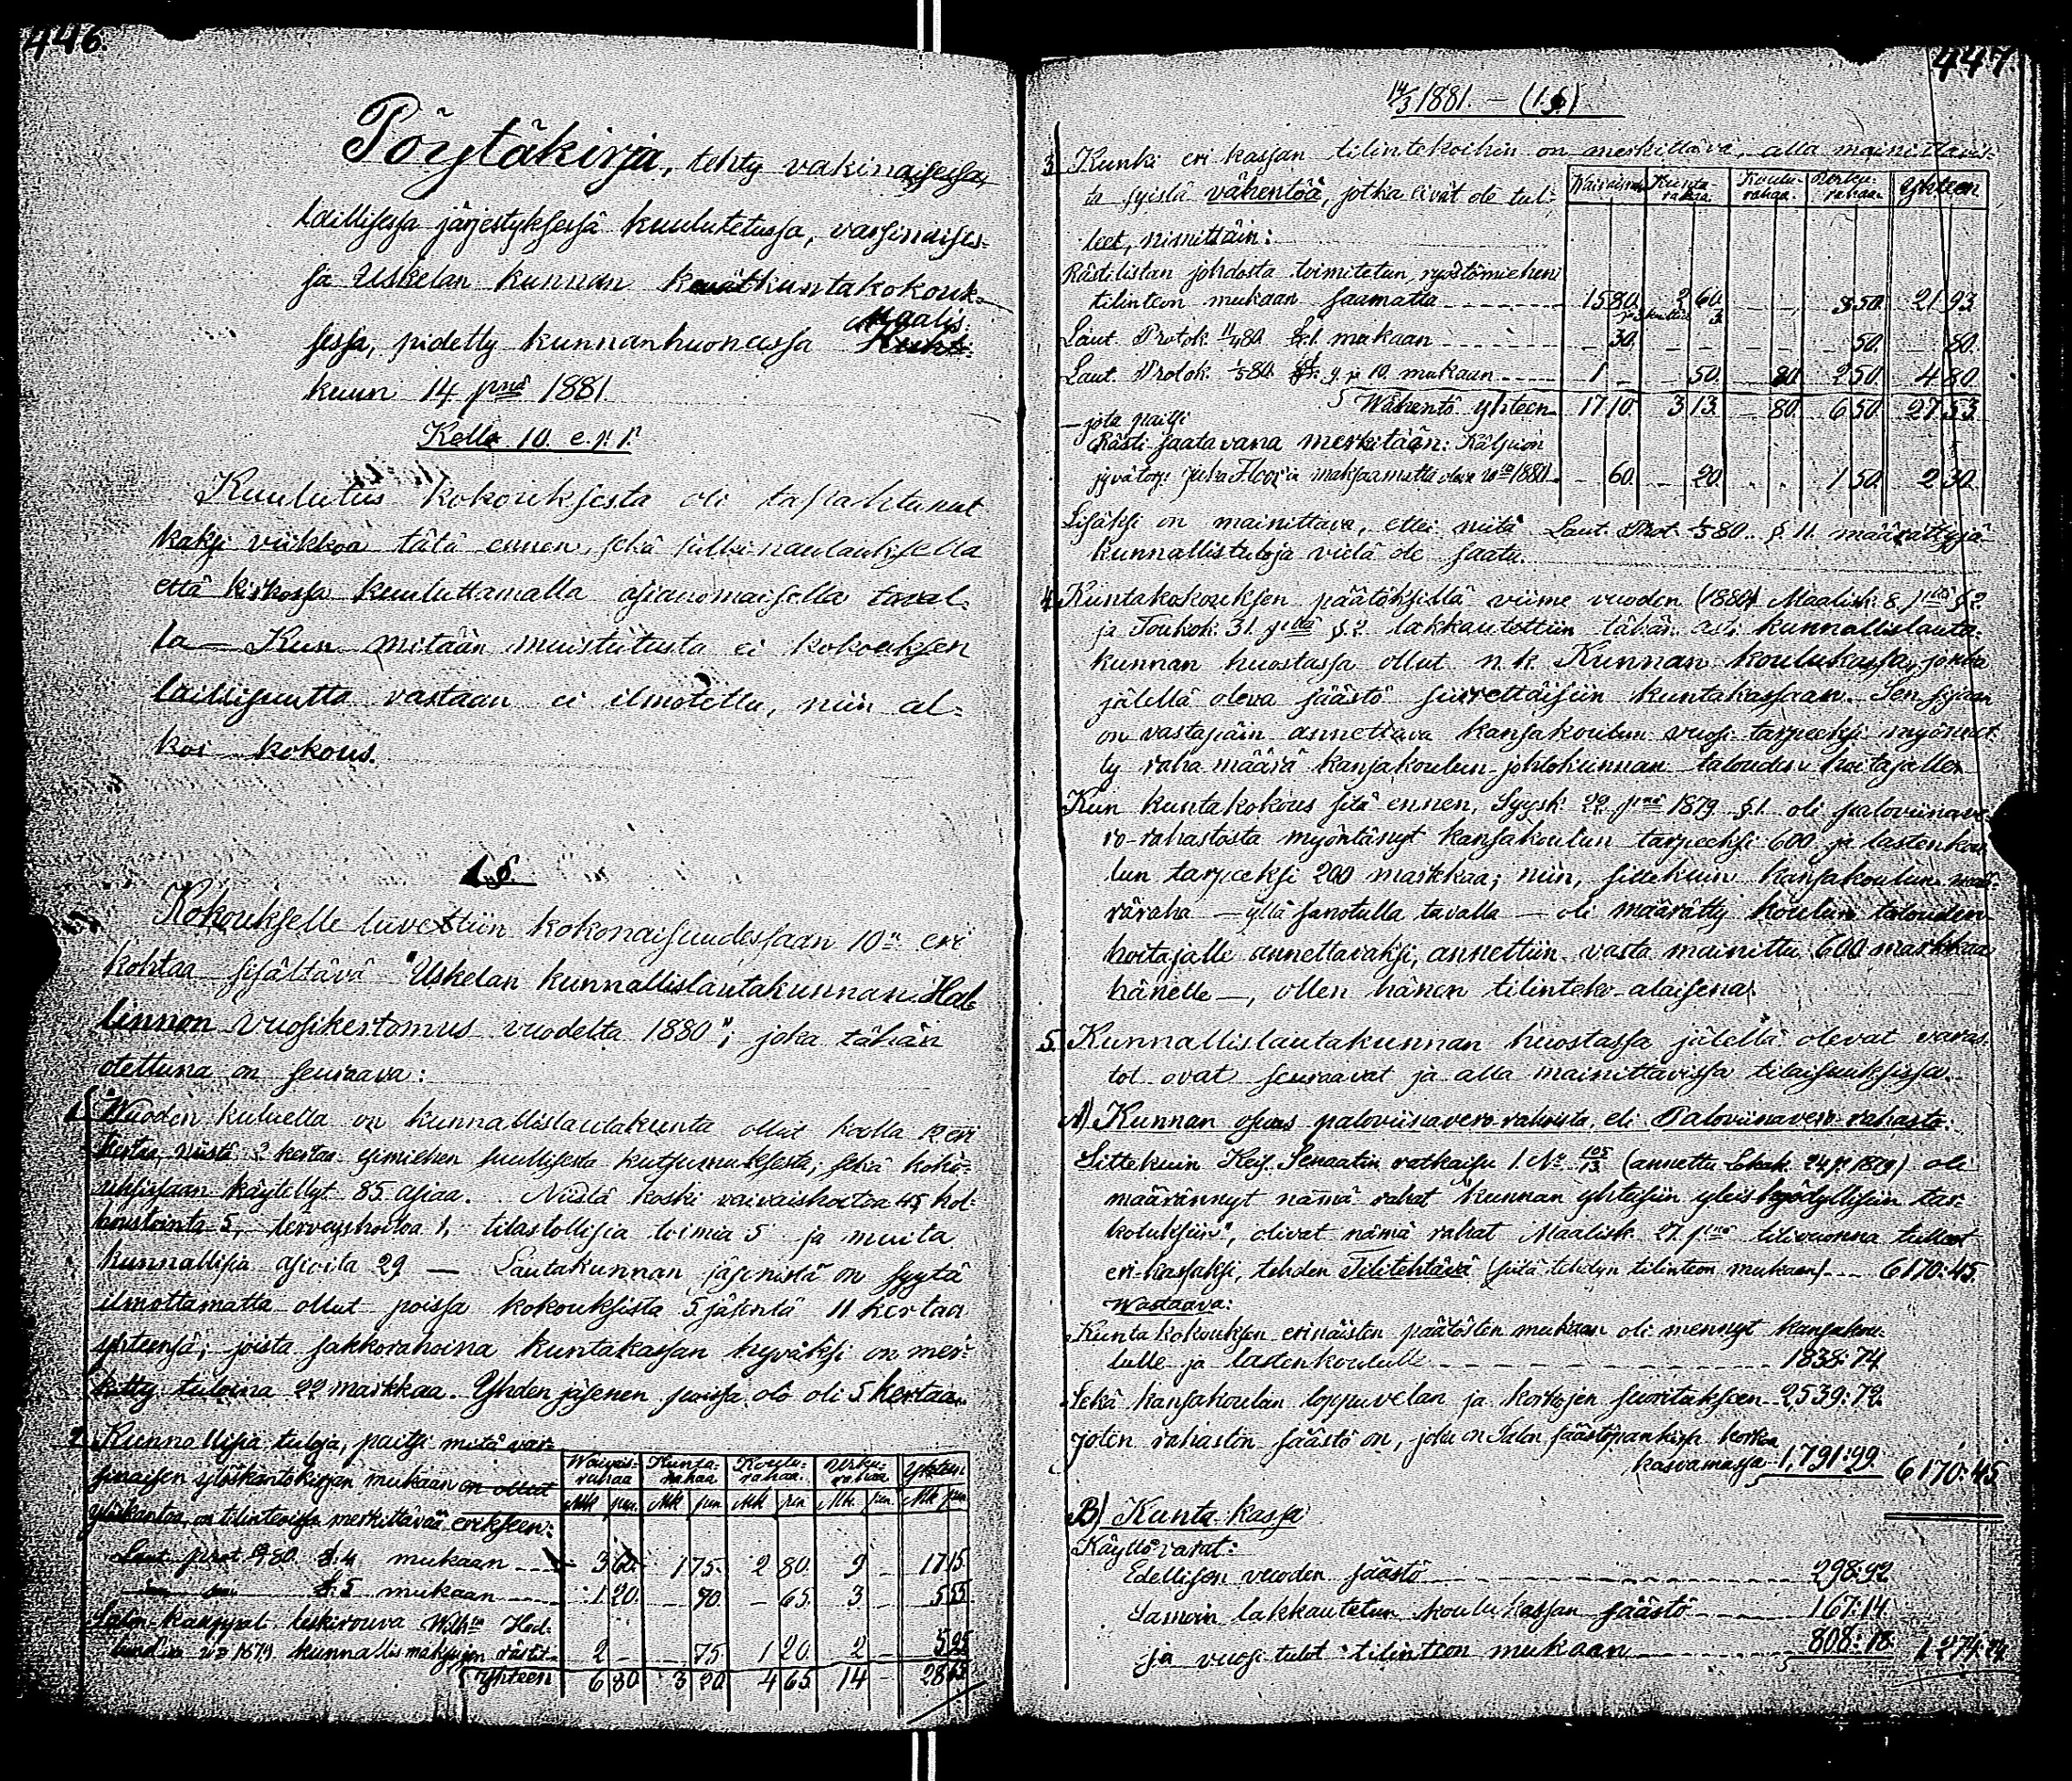 446.
Pöytäkirja, tehty vakinaisessa,
laillisessa järjestyksessä kuulutetussa, varsinaises-
sa Uskelan kunnan kevätkuntakokouk-
sessa, pidetty kunnanhuoneessa Maalis-
kuun 14 pnä 1881.
Kello 10. e. p. p.
Kuulutus kokouksesta oli tapahtunut
kaksi viikkoa tätä ennen, sekä julkinaulauksella
että kirkossa kuuluttamalla asianomaisella taval-
la — Kun mitään muistutusta ei kokouksen
laillisuutta vastaan ei ilmotettu, niin al-
koi kokous.
1. §.
Kokoukselle luvettiin kokonaisuudessaan 10n eri
kohtaa sisältävä "Uskelan kunnallislautakunnan Hal-
linnon vuosikertomus vuodelta 1880"; joka tähän
otettuna on seuraava:
1. Wuoden kuluella on kunnallislautakunta ollut koolla 12 eri
kertaa, niistä 2 kertaa esimiehen suullisesta kutsumuksesta, sekä koko-
uksissaan käytellyt 85 asiaa. Niistä koski vaivaishoitoa 45, hol-
houstointa 5, terveyshoitoa 1, tilastollisia toimia 5 ja muita
kunnallisia asioita 29 — Lautakunnan jäsenistä on syytä
ilmottamatta ollut poissa kokouksista 5 jäsentä 11 kertaa
yhteensä; joista sakkorahoina kuntakassan hyväksi on mer-
kitty tuloina 22 markkaa. Yhden jäsenen poissa olo oli 5 kertaa.
2. Kunnallisia tuloja, paitsi mitä var-
sinaisen ylöskantokirjan mukaan on ollut
ylöskantoa, on tilinteossa merkittävää erikseen:
Waivais-rahaa Kunta-rahaa Koulu-rahaa Urku-rahaa Yhteen
Mk pen. Mk pen Mk pen Mk. pen Mk pen
Laut. prot. 80. §. 4 mukaan 3 60. 1 75. 2 80. 9 — 17 15
§. 5 mukaan 1 20. — 70. — 65. 3 — 5 55
Salon kauppal. leskirouva Wilhna Hed-
v:a 1879 kunnallismaksujen rästit 2 — — 75 1 20. 2 — 5 95
Yhteen 6 80. 3 20. 4 65. 14 — 28 65
447.
14/3 1881. — (1.§)
3. Kunki eri kassan tilintekoihin on merkittävä, alla mainittavis-
ta syistä vähentöä, jotka eivät ole tul-
leet, nimittäin:
Waivaisraha Kunta rahaa. Koulu-rahaa. rahaa. Yhteen
Rästilistan johdosta toimitetun ryöstömiehen
tilinteon mukaan saamatta 15 80. 2 60. — 3 50. 21 93.
Laut. Protok. 80 §. 1. mukaan — 30. — — 50. — 80.
Laut. Protok. 80. §§. 9 ja 10. mukaan 1 — — 50. — 80. 2 50. 4 80.
Wähentö yhteen 17 10. 3 13. — 80. 6 50. 27 53.
— jota paitsi
Rästi saatavana merkitään:
maksamatta oleva 1880 — 60. — 20. 1 50. 2 30.
Lisäksi on mainittava, ettei niitä Laut. Prot. 80. § 11. määrättyjä
kunnallistuloja vielä ole saatu.
4. Kuntakokouksen päätöksillä viime vuoden (1880) Maalisk. 8 pltä § 2
ja Toukok. 31. pltä §. 2 lakkautettiin tähän asti kunnallislauta-
kunnan huostassa ollut n. k. Kunnan koulukassa, jonka
jälellä oleva säästö siirrettäisiin kuntakassaan. Sen sijaan
on vastapäin annettava kansakoulun vuosi-tarpeeksi myönnet-
ty raha määrä kansakoulun johtokunnan talouden hoitajalle.
Kun kuntakokous sitä ennen, Syysk. 22. pnä 1879 §.1. oli paloviinave-
ro-rahastosta myöntänyt kansakoulun tarpeeksi 600 ja lastenkou-
lun tarpeeksi 200 markkaa; niin, sittekuin kansakoulun mää-
räraha — yllä sanotulla tavalla — oli määrätty koulun talouden
hoitajalle annettavaksi, annettiin vasta mainittu 600 markkaa
hänelle —, ollen hänen tilinteko-alaisena.
5. Kunnallislautakunnan huostassa jälellä olevat varas-
tot ovat seuraavat ja alla mainittavissa tilaisuuksissa.
A) Kunnan osuus paloviinavero rahoista, eli Paloviinavero-rahasto.
Sittekuin Keis. Senaatin ratkaisu 1. No 105/13 (annettu Lokak. 24 p. 1879) oli
määrännyt nämä rahat "kunnan yhteisiin yleis hyödyllisiin tar-
kotuksiin", olivat nämä rahat Maalisk. 27. pnä tilivuonna tulleet
eri-kassaksi, tehden Tilitehtävä (siitä tehdyn tilinteon mukaan) 6170:45.
Wastaava:
Kunta kokouksen erinäisten päätösten mukaan oli mennyt kansakou-
lulle ja lastenkoululle 1838:74
Sekä kansakoulun loppuvelan ja korkojen suoritukseen 2539:72.
joten rahaston säästö on, joka on Salon säästöpankissa korkoa
kasvamassa 1,791:99 6170:45
B) Kunta kassa
Käyttövarat:
Edellisen vuoden säästö 298:92
Samoin lakkautetun koulukassan säästö 167:14
ja vuosi tulot tilinteon mukaan 808:18. 1274:24